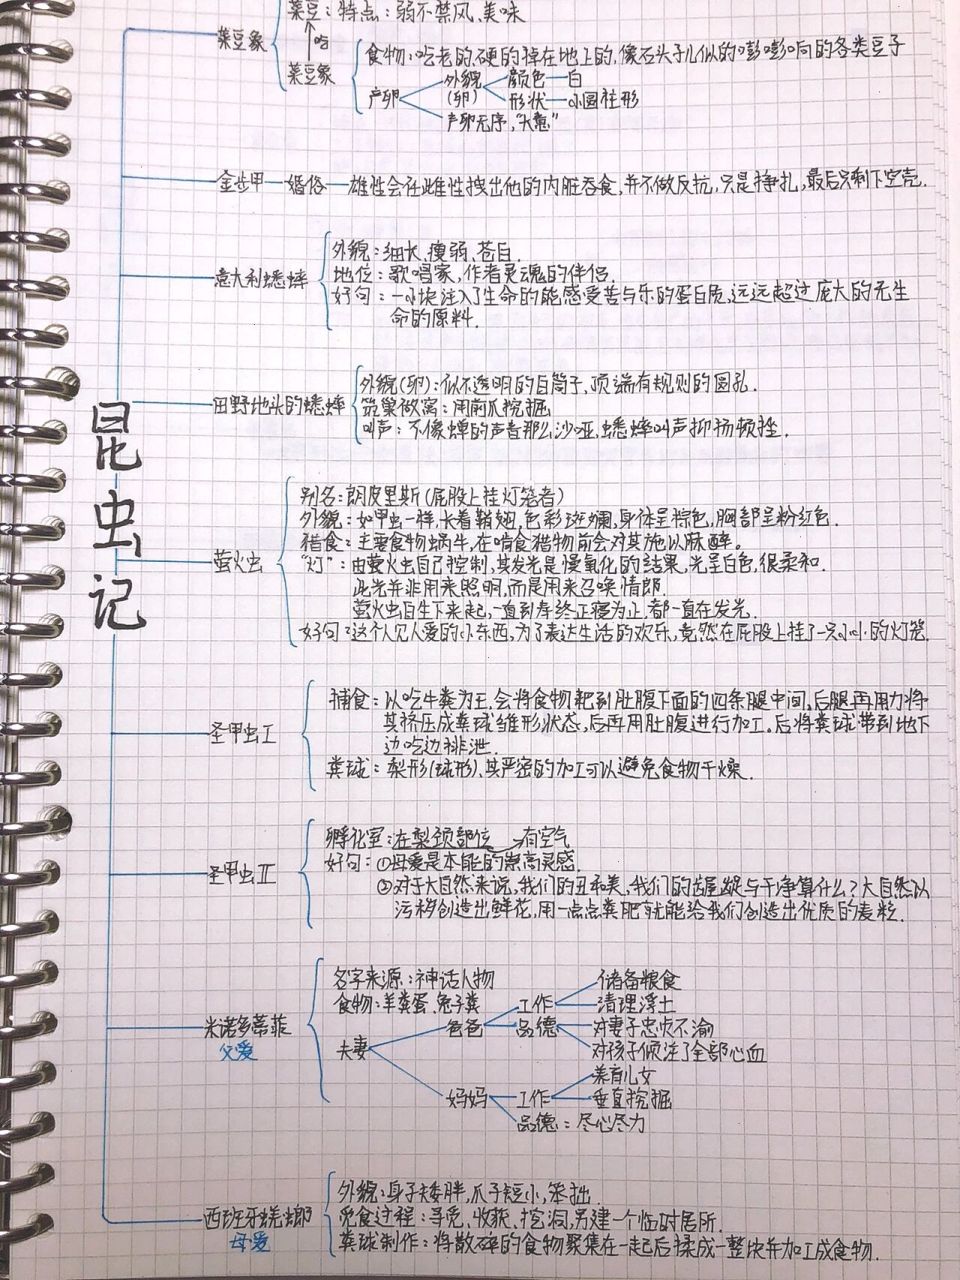 昆虫记
菜豆象
菜豆：特点：弱不禁风、美味
吃
菜豆象
食物：吃老的、硬的掉在地上的，像石头子儿似的嘭嘭响的各类豆子
产卵
外貌(卵)
颜色—白
形状—小圆柱形
产卵无序，"大意"
金步甲—婚俗—雄性会任雌性拽出他的内脏吞食，并不做反抗，只是挣扎，最后只剩下空壳．
意大利蟋蟀
外貌：细长、瘦弱、苍白．
地位：歌唱家，作者灵魂的伴侣．
好句：一小块注入了生命的能感受苦与乐的蛋白质，远远超过庞大的无生
命的原料．
田野地头的蟋蟀
外貌(卵)：似不透明的白筒子，顶端有规则的圆孔．
筑巢做窝：用前爪挖掘
叫声：不像蝉的声音那么沙哑，蟋蟀叫声抑扬顿挫．
萤火虫
别名：朗皮里斯(屁股上挂灯笼者)
外貌：如甲虫一样，长着鞘翅，色彩斑斓，身体呈棕色，胸部呈粉红色．
猎食：主要食物蜗牛，在啃食猎物前会对其施以麻醉。
"灯"：由萤火虫自己控制，其发光是慢氧化的结果，光呈白色，很柔和．
此光并非用来照明，而是用来召唤情郎．
萤火虫自生下来起，一直到寿终正寝为止，都一直在发光．
好句：这个人见人爱的小东西，为了表达生活的欢乐，竟然在屁股上挂了一只小小的灯笼．
圣甲虫Ⅰ
捕食：以吃牛粪为王，会将食物耙到肚腹下面的四条腿中间，后腿再用力将
其挤压成粪球雏形状态，后再用肚腹进行加工。后将粪球带到地下
边吃边排泄．
粪球：梨形(球形)，其严密的加工可以避免食物干燥．
圣甲虫Ⅱ
孵化室：在梨颈部位→有空气
好句：①母爱是本能的崇高灵感．
②对于大自然来说，我们的丑和美，我们的龌龊与干净算什么？大自然以
污秽创造出鲜花，用一点点粪肥就能给我们创造出优质的麦粒．
米诺多蒂菲
父爱
名字来源：神话人物
食物：羊粪蛋、兔子粪
夫妻
爸爸
工作
储备粮食
清理浮土
品德
对妻子忠贞不渝
对孩子倾注了全部心血
妈妈
工作
养育儿女
垂直挖掘
品德：尽心尽力
西班牙蜣螂
母爱
外貌：身子矮胖，爪子短小，笨拙．
觅食过程：寻觅、收获、挖洞，另建一个临时居所．
粪球制作：将散碎的食物聚集在一起后揉成一整块并加工成食物．